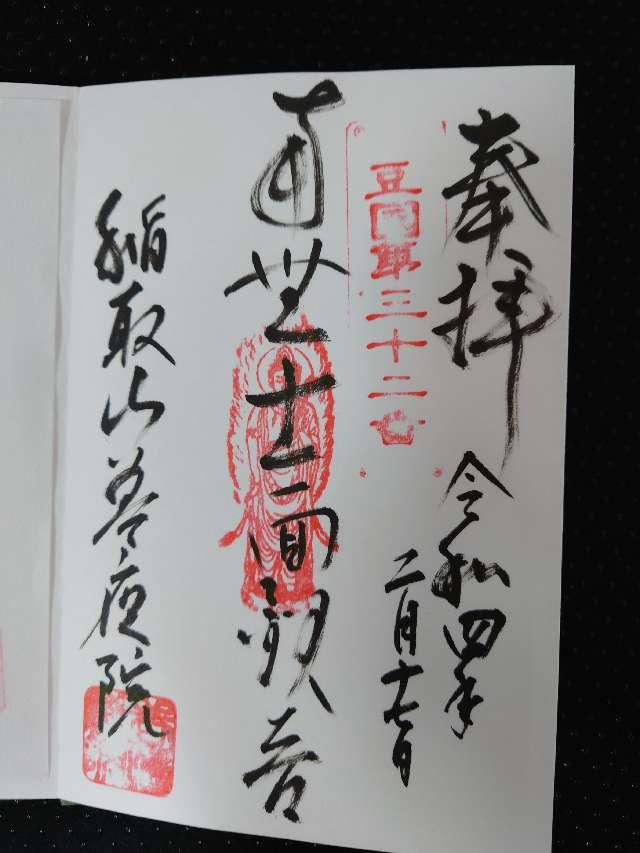 奉拝
令和四年
二月十七日
豆国第三十二
南無十一面観音
稲取山善応院